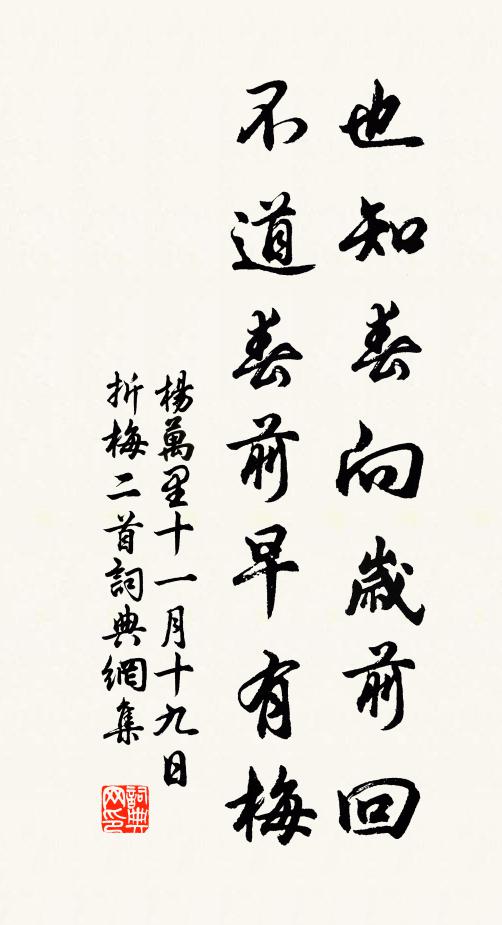 也知春向歲前回
不道春前早有梅
楊萬里十一月十九日
折梅二首詞典網集
詞典网印